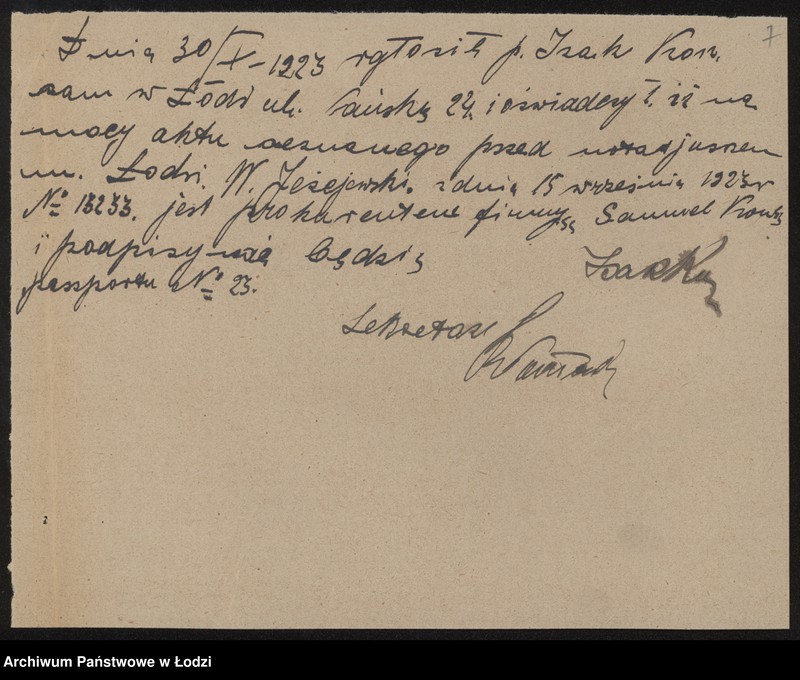 7
Dnia 30/X-1923 zgłosił p. Izak Kon,
zam w Łódi ul. Pańska 24. i oświadczył, iż na
mocy aktu zeznanego przed notarjuszem
m. Łodzi. W. Jeżejewski, z dnia 15 września 1923 r
№ 13233. jest prokurentem firmy Samuel
i podpisywać będzie
passportu № 23.
Sekretarz
Archiwum Państwowe w Łodzi